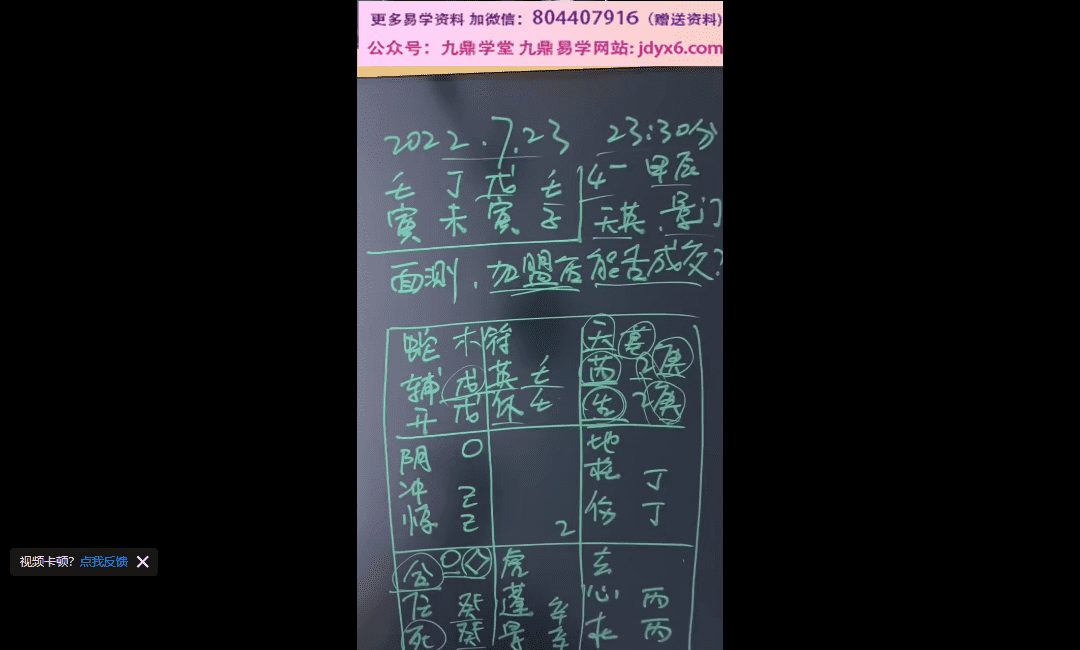 更多易学资料 加微信：804407916（赠送资料）
公众号：九鼎学堂 九鼎易学网站: jdyx6.com
2022.7.23 23:30分
壬 丁 戊 壬 4一 甲辰
寅 未 寅 子 天英.景门
面测，加盟店能否成交？
蛇 木 符 天 墓
辅 戊 英 壬 芮 2 庚
开 戊 休 壬 生 2 庚
阴 O 地
冲 己 柱 丁
惊 己 2 伤 丁
合 O◇ 虎 玄
任 癸 蓬 辛 心 丙
死 癸 景 辛 杜 丙
视频卡顿？点我反馈